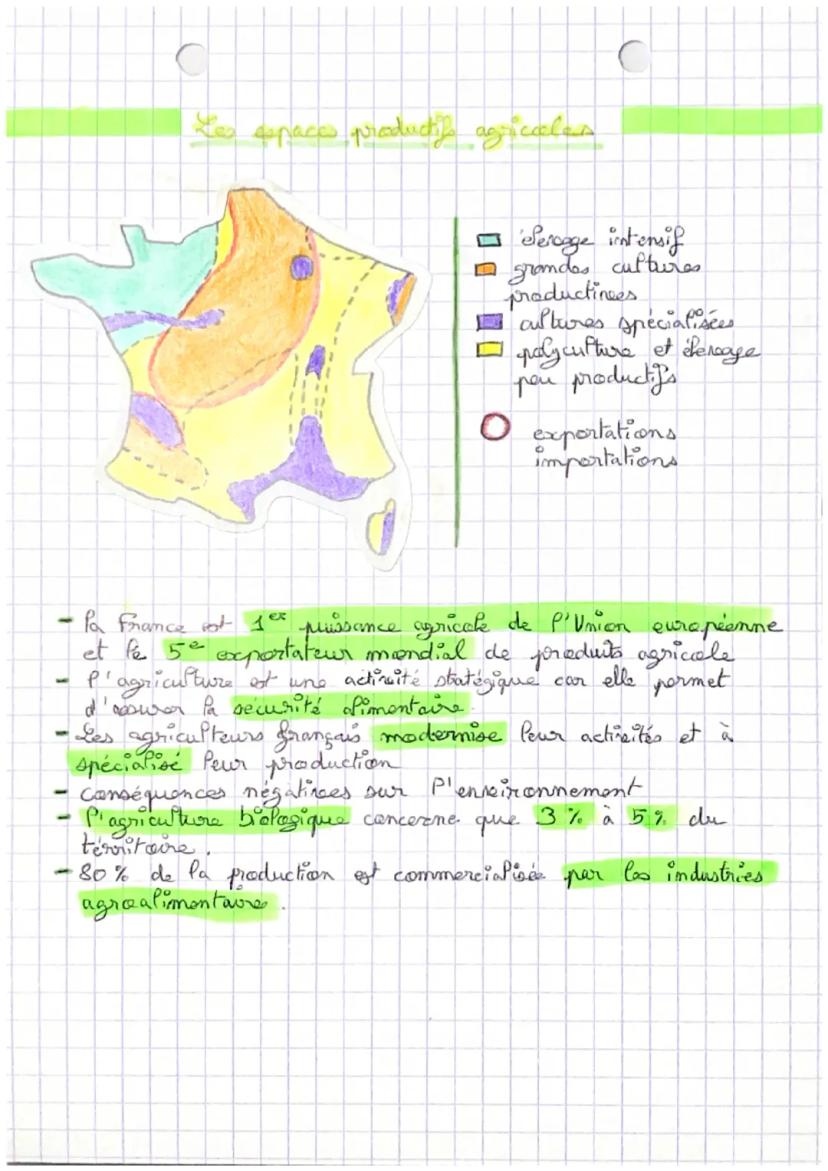 Les espaces productifs agricoles
élevage intensif
grandes cultures
productives
cultures spécialisées
polyculture et élevage
peu productifs
exportations
importations
- la France est 1er puissance agricole de l'Union européenne
et le 5e exportateur mondial de produits agricole
- l'agriculture est une activité statégique car elle permet
d'assurer la sécurité alimentaire.
- Les agriculteurs français modernise leur activités et à
spécialisé leur production
- conséquences négatives sur l'environnement
- l'agriculture biologique concerne que 3 % à 5 % du
térritoire.
- 80 % de la production est commercialisée par les industries
agroalimentaires.